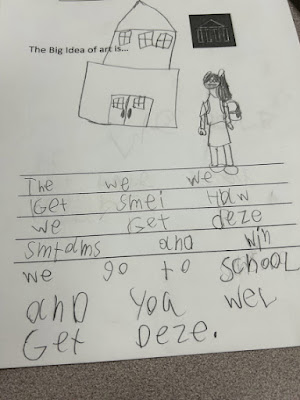 The Big Idea of art is...
The we we
Get smei Haw
we Get deze
smtams and win
we go to School
and you wel
Get Deze.